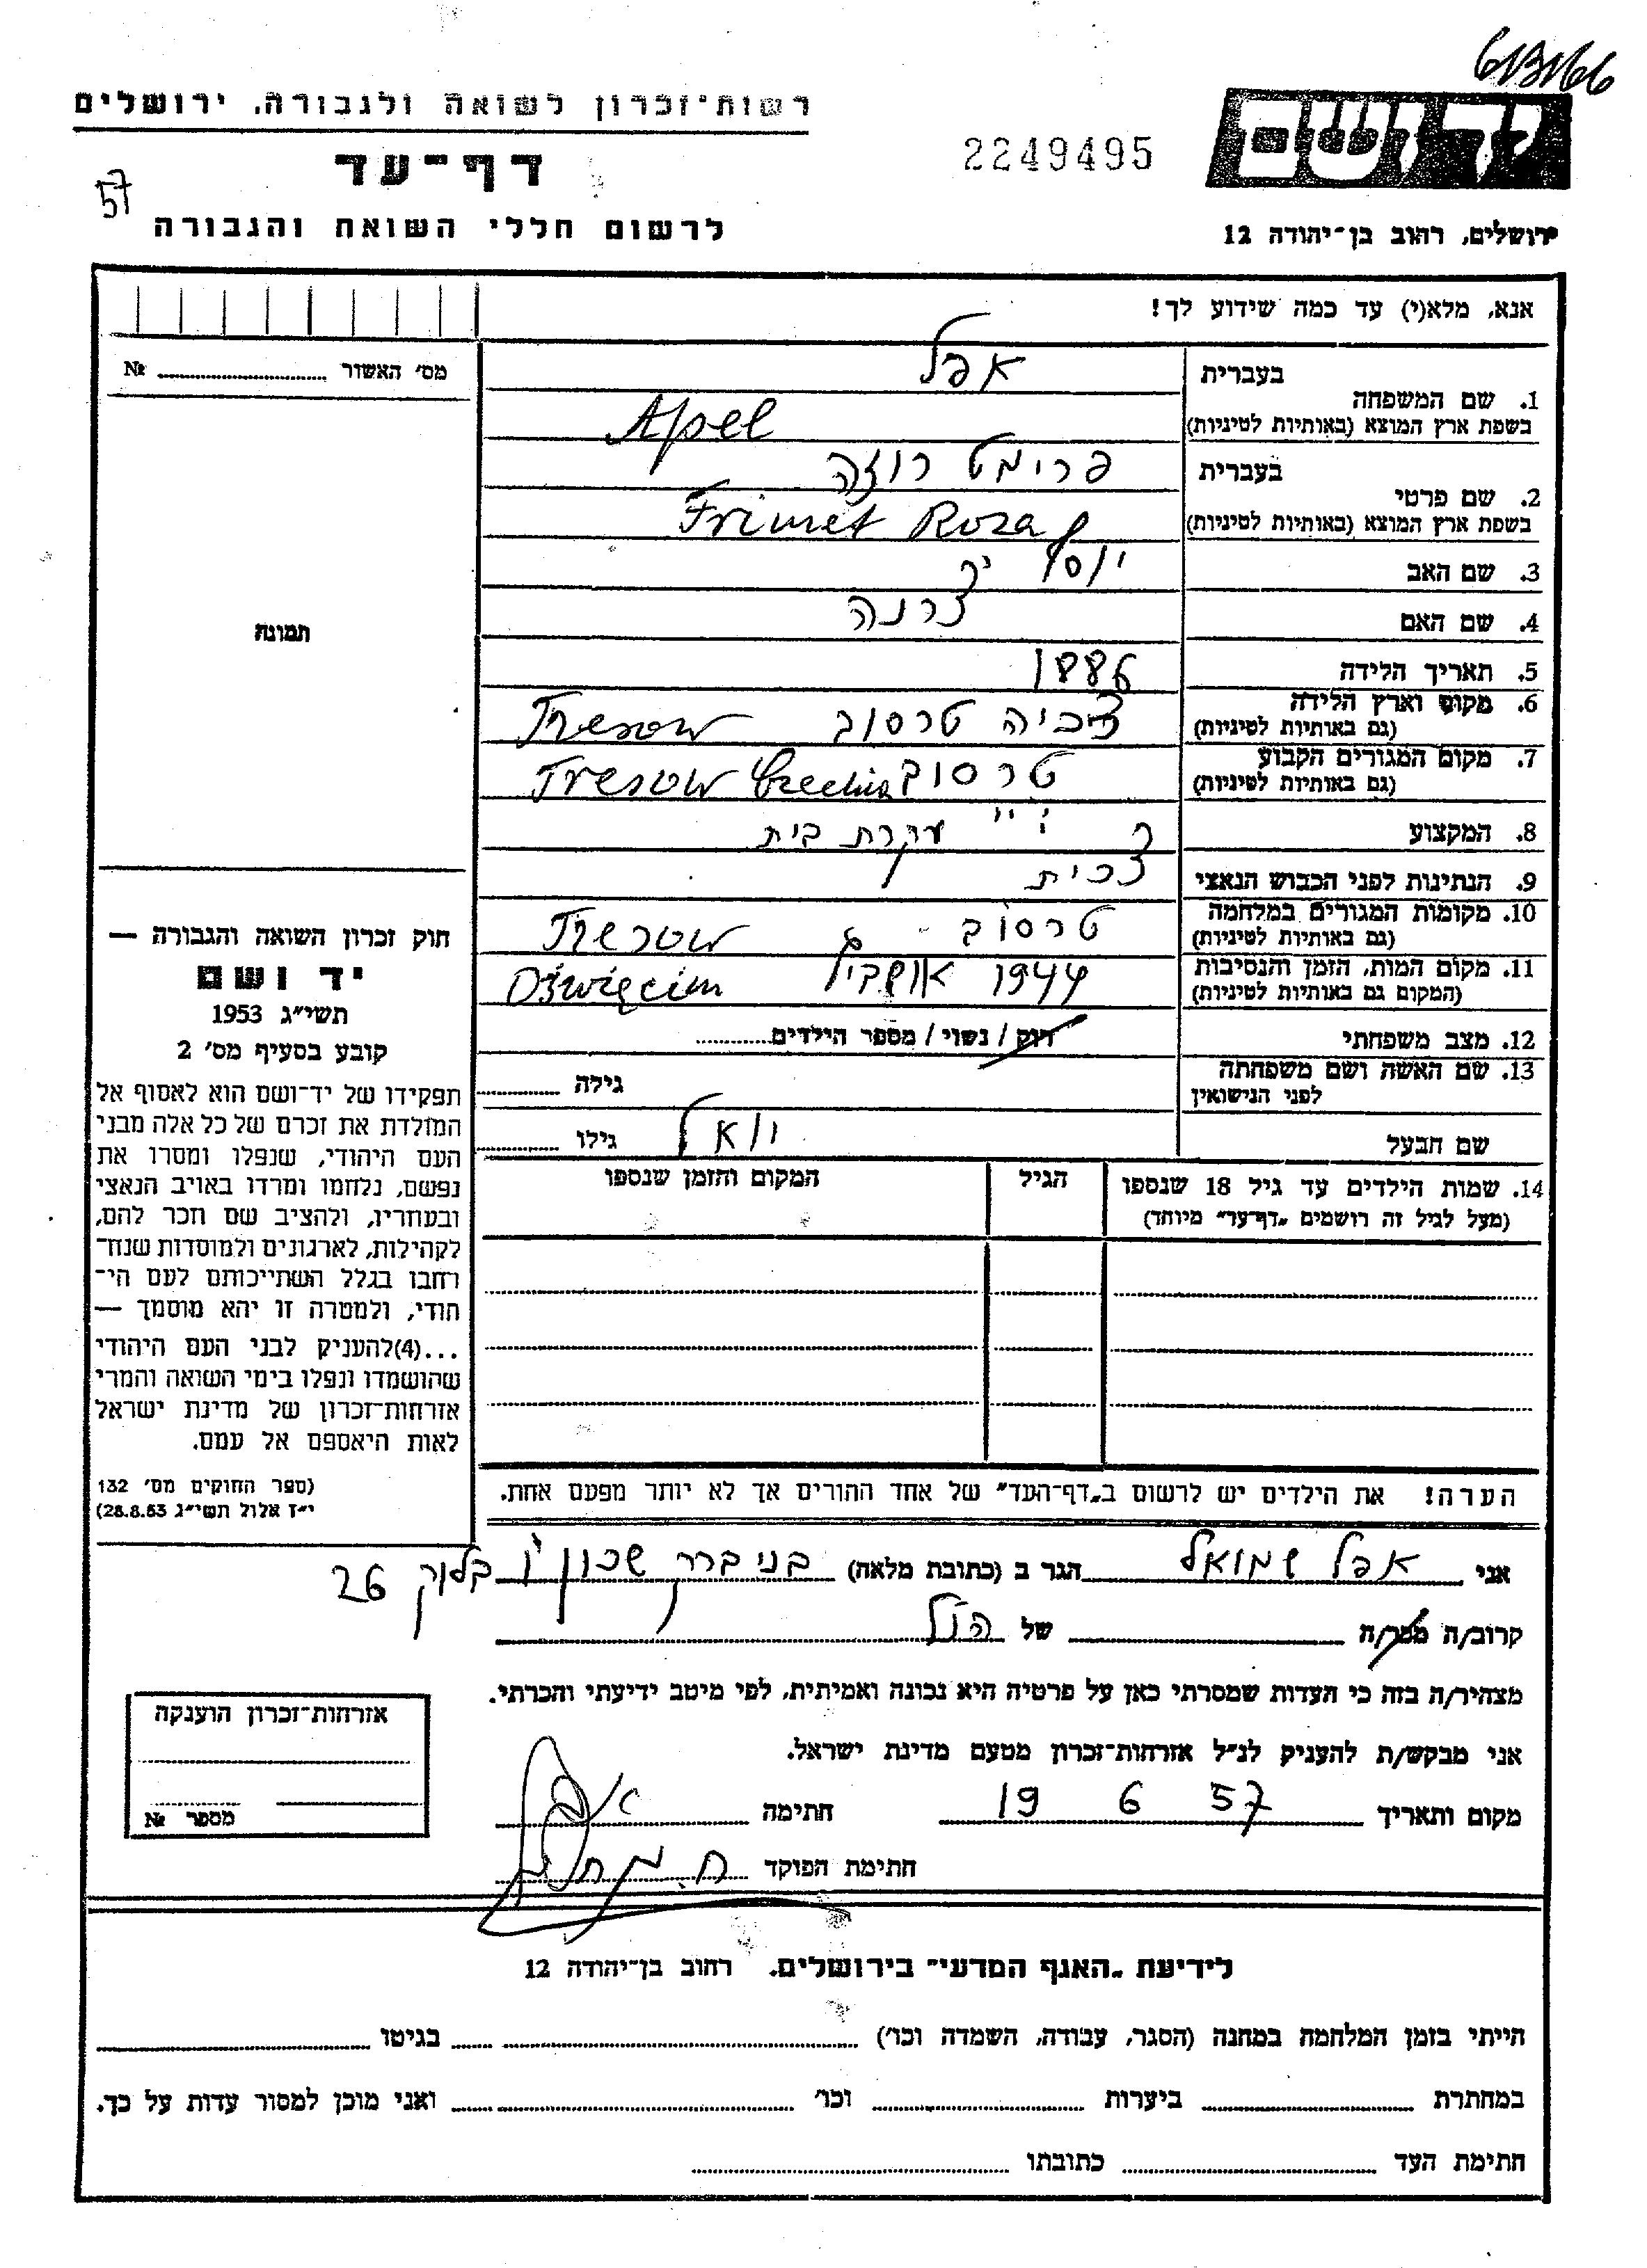 רשות-זכרון לשואה ולגבורה, ירושלים
דף-עד
57
לרשום חללי השואה והגבורה
2249495
ירושלים, רחוב בן-יהודה 12
אנא, מלא(י) עד כמה שידוע לך!
מס׳ האשור № 
תמונה
1. שם המשפחה בעברית אפל
בשפת ארץ המוצא (באותיות לטיניות) Apel
2. שם פרטי בעברית פרימט רוזה
בשפת ארץ המוצא (באותיות לטיניות) Frimet Roza
3. שם האב יוסף
4. שם האם צרנה
5. תאריך הלידה
6. מקום וארץ הלידה (גם באותיות לטיניות) צכיה טרסוב Tresow
7. מקום המגורים הקבוע (גם באותיות לטיניות) טרסוב Tresow Czechia
8. המקצוע עקרת בית
9. הנתינות לפני הכבוש הנאצי צכית
10. מקומות המגורים במלחמה (גם באותיות לטיניות) טרסוב Tresow
11. מקום המות, הזמן והנסיבות (המקום גם באותיות לטיניות) 1944 Oświęcim
12. מצב משפחתי רוק / נשוי / מספר הילדים
13. שם האשה ושם משפחתה לפני הנישואין גילה
שם הבעל יואל גילו
14. שמות הילדים עד גיל 18 שנספו
(מעל לגיל זה רושמים „דף-עד״ מיוחד)
הגיל
המקום והזמן שנספו
הערה! את הילדים יש לרשום ב„דף-העד״ של אחד ההורים אך לא יותר מפעם אחת.
חוק זכרון השואה והגבורה —
יד ושם
תשי״ג 1953
קובע בסעיף מס׳ 2
תפקידו של יד-ושם הוא לאסוף אל
המולדת את זכרם של כל אלה מבני
העם היהודי, שנפלו ומסרו את
נפשם, נלחמו ומרדו באויב הנאצי
ובעוזריו, ולהציב שם וזכר להם,
לקהילות, לארגונים ולמוסדות שנח-
רבו בגלל השתייכותם לעם הי-
הודי, ולמטרה זו יהא מוסמך —
...(4) להעניק לבני העם היהודי
שהושמדו ונפלו בימי השואה והמרי
אזרחות-זכרון של מדינת ישראל
לאות היאספם אל עמם.
(ספר החוקים מס׳ 132
י״ז אלול תשי״ג 28.8.53)
אני אפל שמואל הגר ב (כתובת מלאה) בני ברק שכון ו׳ בלוק 26
קרוב/ה מכר/ה של
מצהיר/ה בזה כי העדות שמסרתי כאן על פרטיה היא נכונה ואמיתית, לפי מיטב ידיעתי והכרתי.
אני מבקש/ת להעניק לנ״ל אזרחות-זכרון מטעם מדינת ישראל.
מקום ותאריך 19 6 57 חתימה
חתימת הפוקד
אזרחות-זכרון הוענקה
מספר №
לידיעת „האגף המדעי״ בירושלים, רחוב בן-יהודה 12
הייתי בזמן המלחמה במחנה (הסגר, עבודה, השמדה וכו׳) בגיטו
במחתרת ביערות וכו׳ ואני מוכן למסור עדות על כך.
חתימת העד כתובתו